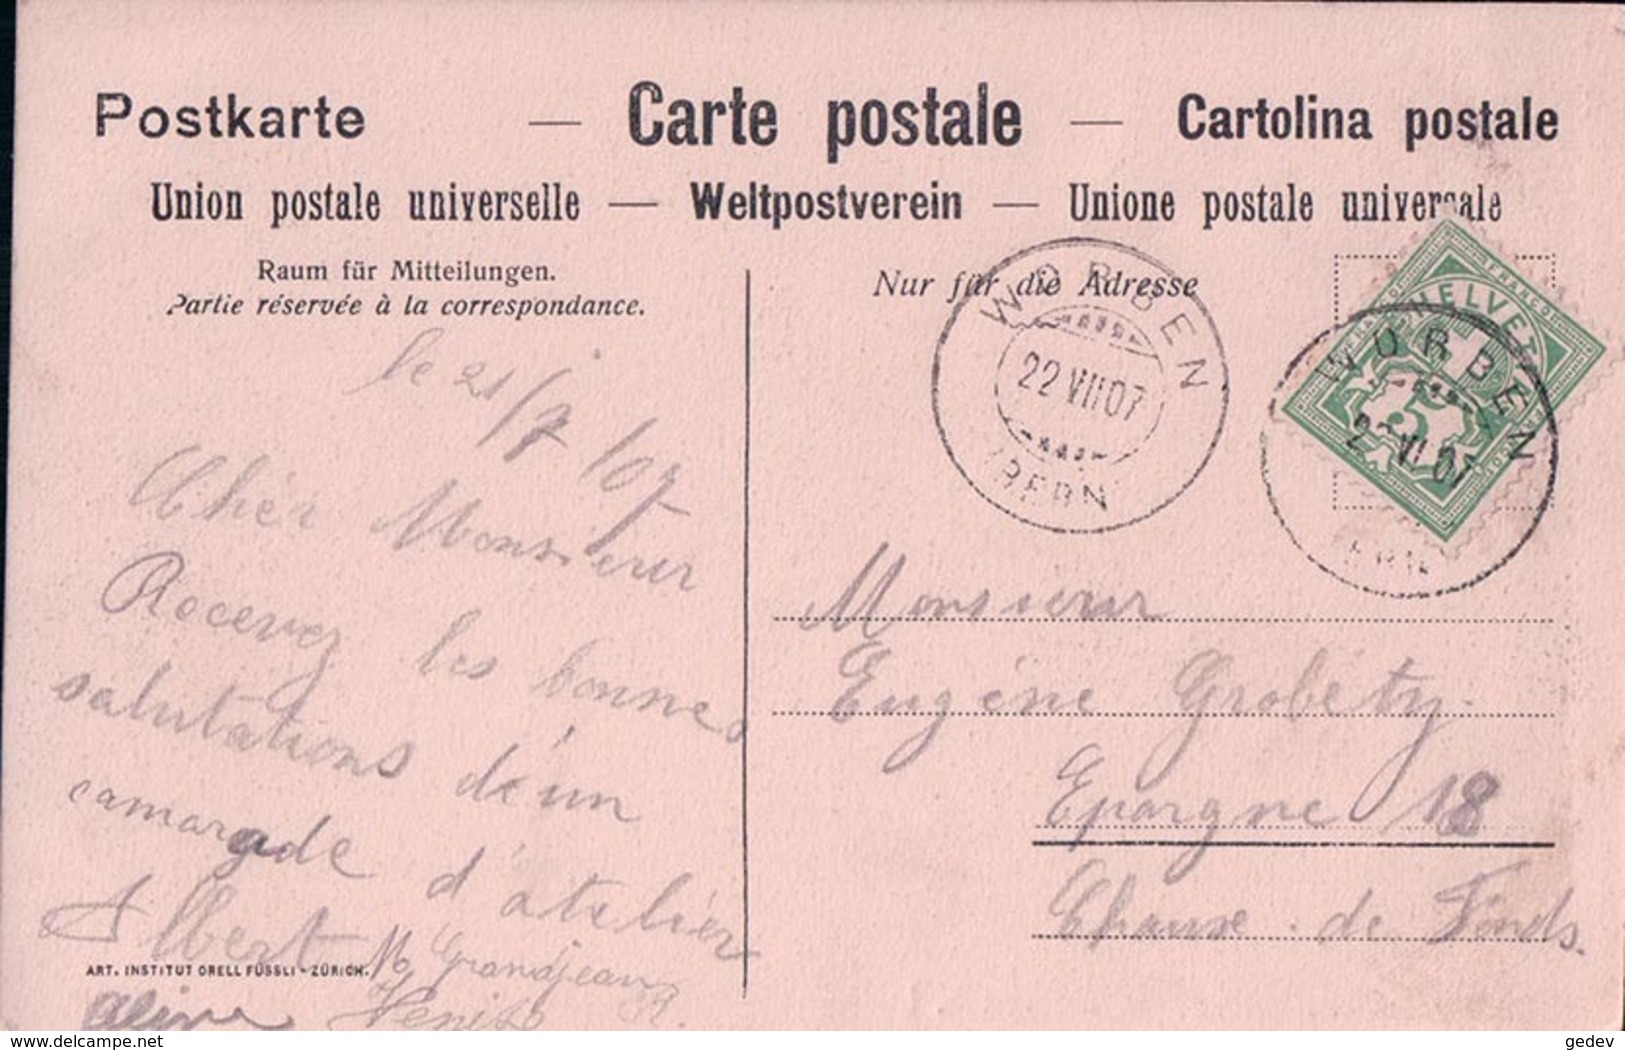 Postkarte — Carte postale — Cartolina postale
Union postale universelle — Weltpostverein — Unione postale universale
Raum für Mitteilungen.
Partie réservée à la correspondance.
Nur für die Adresse
WORBEN
22 VII 07
(BERN)
FRANCO
HELVETIA
5
WORBEN
VII 07
le 21/7/07
Cher Monsieur
Recevez les bonnes
salutations de'un
camarade d'atelier
Albert
Grandjean
ART. INSTITUT ORELL FÜSSLI - ZÜRICH.
Aline
Monsieur
Eugène Grobéty.
Epargne 18
Chaux-de Fonds.
delcampe.net
gedev